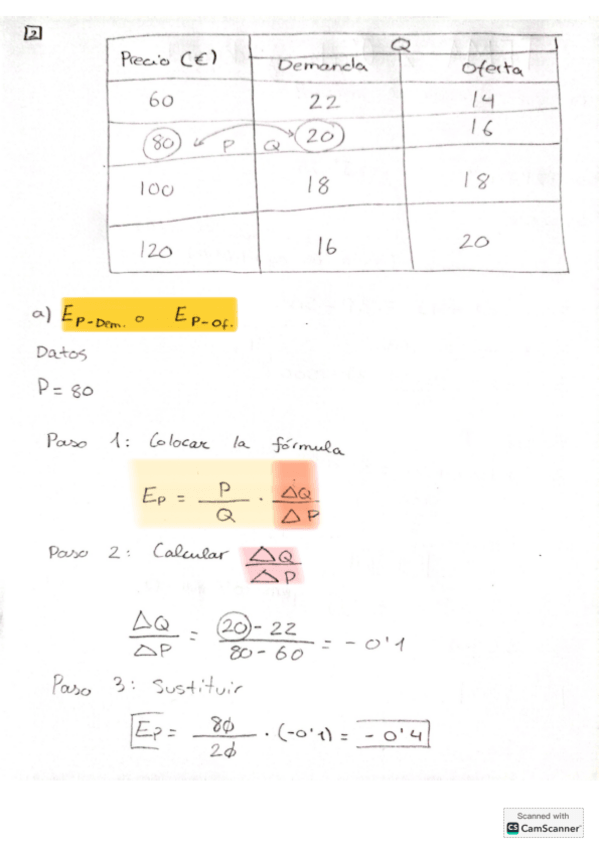 2
Q
Precio (€) Demanda Oferta
60 22 14
80 P Q 20 16
100 18 18
120 16 20
a) E P-Dem. o E P-Of.
Datos
P = 80
Paso 1: Colocar la fórmula
Ep = P/Q · ΔQ/ΔP
Paso 2: Calcular ΔQ/ΔP
ΔQ/ΔP = 20 - 22/80 - 60 = - 0'1
Paso 3: Sustituir
Ep = 80/20 · (-0'1) = - 0'4
Scanned with
CS CamScanner